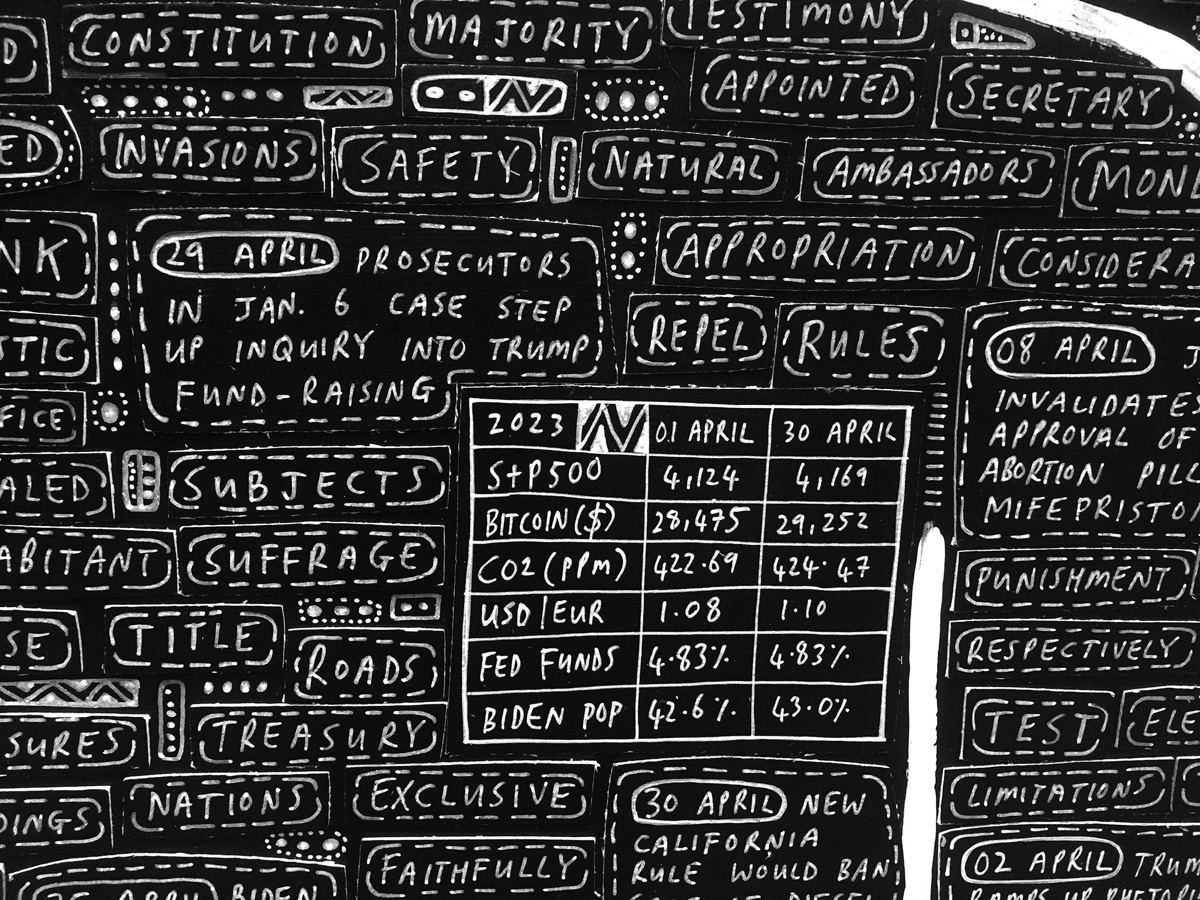 CONSTITUTION
MAJORITY
TESTIMONY
APPOINTED
SECRETARY
INVASIONS
SAFETY
NATURAL
AMBASSADORS
APPROPRIATION
29 APRIL PROSECUTORS
IN JAN. 6 CASE STEP
UP INQUIRY INTO TRUMP
FUND-RAISING
REPEL
RULES
08 APRIL J
INVALIDATES
APPROVAL OF
ABORTION PILL
MIFEPRISTO
2023 01 APRIL 30 APRIL
S+P500 4,124 4,169
BITCOIN($) 28,475 29,252
CO2(PPM) 422.69 424.47
USD/EUR 1.08 1.10
FED FUNDS 4.83% 4.83%
BIDEN POP 42.6% 43.0%
FICE
SUBJECTS
ALED
ABITANT
SUFFRAGE
PUNISHMENT
SE
TITLE
ROADS
RESPECTIVELY
SURES
TREASURY
TEST
ELE
NATIONS
EXCLUSIVE
LIMITATIONS
DINGS
FAITHFULLY
30 APRIL NEW
CALIFORNIA
RULE WOULD BAN
02 APRIL TRUM
APRIL BIDEN